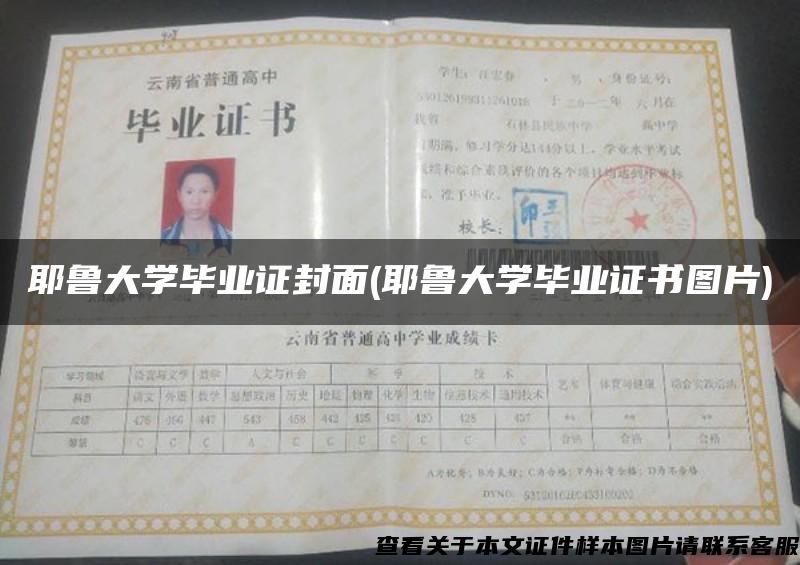 云南省普通高中
毕业证书
男 ,身份证号:
于二〇一二年 六 月在
石林县民族中学 高中学
习期满,修习学分达144分以上,学业水平考试
成绩和综合素质评价的各个项目均达到毕业标
准,准予毕业。
校长:
耶鲁大学毕业证封面(耶鲁大学毕业证书图片)
云南省普通高中学业成绩卡
学习领域 语言与文学 数学 人文与社会 科 学 技 术 艺术 体育与健康 综合实践活动
科目 语文 外语 数学 思想政治 历史 地理 物理 化学 生物 信息技术 通用技术
成绩 447 543 458 442 425 420 428 457 ** ** **
等第 C C C A C C C C C C C 合格 合格 合格
A为优秀; B为良好; C为合格; F为补考合格; D为不合格
DYNO:
查看关于本文证件样本图片请联系客服